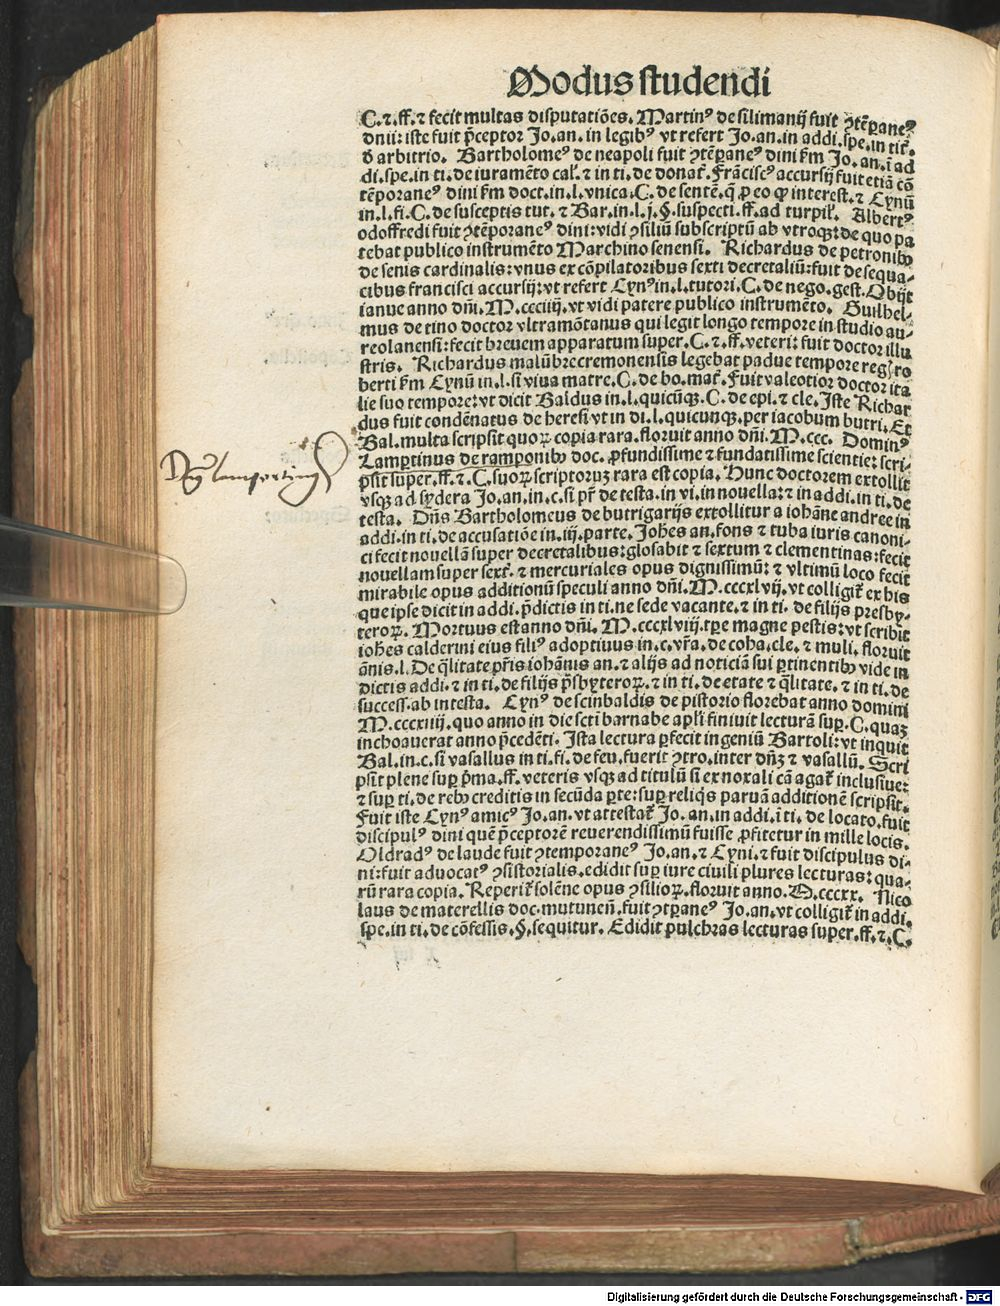 Modus studendi
C. ⁊. ff. ⁊ fecit multas disputatiões. Martinꝰ de silimanij fuit ꝯtẽꝑaneꝰ
dnii: iste fuit p̃ceptor Jo. an. in legibꝰ vt refert Jo. an. in addi. spe. in tit̃.
ð arbitrio. Bartholomeꝰ de neapoli fuit ꝯtẽꝑaneꝰ dini km̃ Jo. an. ĩ ad
di. spe. in ti. de iuramẽto cal'. ⁊ in ti. de donat̃. Frãciscꝰ accursij fuit etiã cõ
tẽporaneꝰ dini km̃ doct. in. l. vnica. C. de sentẽ. q̃ ꝓ eo ꝙ interest. ⁊ Cynũ
in. l. fi. C. de susceptis tut. ⁊ Bar. in. l. j. §. suspecti. ff. ad turpil'. Albertꝰ
odoffredi fuit ꝯtẽꝑaneꝰ dini: vidi ꝯsiliũ subscriptũ ab vtroqꝫ: de quo pa
tebat publico instrumẽto Marchino senensi. Richardus de petronibꝰ
de senis cardinalis: vnus ex cõpilatoribus sexti decretaliũ: fuit de sequa⸗
cibus francisci accursij: vt refert Cynꝰ in. l. tutori. C. de nego. gest. Obijt
ianue anno dñi. M. ccciiij. vt vidi patere publico instrumẽto. Guilhel⸗
mus de cino doctor vltramõtanus qui legit longo tempore in studio au⸗
reolanensi: fecit breuem apparatum super. C. ⁊. ff. veteri: fuit doctor illu
stris. Richardus malũbre cremonensis legebat padue tempore reg̃ ro
berti km̃ Cynũ in. l. si viua matre. C. de bo. mat̃. Fuit valeotior doctor ita
lie suo tempore: vt dicit Baldus in. l. quicũqꝫ. C. de epi. ⁊ cle. Iste Richar
dus fuit condẽnatus de heresi vt in di. l. quicunqꝫ. per iacobum butri. Et
Bal. multa scripsit quoꝝ copia rara. floruit anno dñi. M. ccc. Dominꝰ
Lamꝑtinus de ramponibꝰ doc. ꝓfundissime ⁊ fundatissime scientie: scri⸗
psit super. ff. ⁊. C. suoꝝ scriptoruꝫ rara est copia. Hunc doctorem extollit
vsqꝫ ad sydera Jo. an. in. c. si pr̃ de testa. in vi. in nouella: ⁊ in addi. in ti. de
testa. Dñs Bartholomeus de butrigarijs extollitur a iohãne andree in
addi. in ti. de accusatiõe in. iij. parte. Johẽs an. fons ⁊ tuba iuris canoni⸗
ci fecit nouellã super decretalibus: glosabit ⁊ sextum ⁊ clementinas: fecit
nouellam super sext̃. ⁊ mercuriales opus dignissimũ: ⁊ vltimũ loco fecit
mirabile opus additionũ speculi anno dñi. M. cccxlvij. vt colligit̃ ex his
que ipse dicit in addi. p̃dictis in ti. ne sede vacante. ⁊ in ti. de filijs presby⸗
teroꝝ. Mortuus est anno dñi. M. cccxlviij. tp̃e magne pestis: vt scribit
iohẽs calderini eius filiꝰ adoptiuus in. c. vr̃a. de coha. cle. ⁊ muli. floruit
ãnis. l. De q̃litate pr̃is iohãnis an. ⁊ alijs ad noticiã sui ꝑtinentibꝰ vide in
dictis addi. ⁊ in ti. de filijs p̃sbyteroꝝ. ⁊ in ti. de etate ⁊ q̃litate. ⁊ in ti. de
success. ab intesta. Cynꝰ de scinbaldis de pistorio florebat anno domini
M. cccxiiij. quo anno in die scti barnabe apl̃i finiuit lecturã suꝑ. C. quaꝫ
inchoauerat anno p̃cedẽti. Ista lectura ꝑfecit ingeniũ Bartoli: vt inquit
Bal. in. c. si vasallus in ti. si. de feu. fuerit ꝯtro. inter dñꝫ ⁊ vasallũ. Scri
psit plene suꝑ p̃ma. ff. veteris vsqꝫ ad titulũ si ex noxali cã agat̃ inclusiue:
⁊ suꝑ ti. de rebꝰ creditis in secũda ꝑte: suꝑ reliq̃s paruã additionẽ scripsit.
Fuit iste Cynꝰ amicꝰ Jo. an. vt attestat̃ Jo. an. in addi. ĩ ti. de locato. fuit
discipulꝰ dini quẽ p̃ceptorẽ reuerendissimũ fuisse ꝓfitetur in mille locis.
Oldradꝰ de laude fuit ꝯtemporaneꝰ Jo. an. ⁊ Cyni. ⁊ fuit discipulus di⸗
ni: fuit aduocatꝰ ꝯsistorialis. edidit suꝑ iure ciuili plures lecturas: qua⸗
rũ rara copia. Reperit̃ solẽne opus ꝯsilioꝝ. floruit anno. M. cccxx. Nico
laus de materellis doc. mutuneñ. fuit ꝯtꝑaneꝰ Jo. an. vt colligit̃ in addi.
spe. in ti. de cõfessis. §. sequitur. Edidit pulchras lecturas super. ff. ⁊. C.
Digitalisierung gefördert durch die Deutsche Forschungsgemeinschaft - DFG